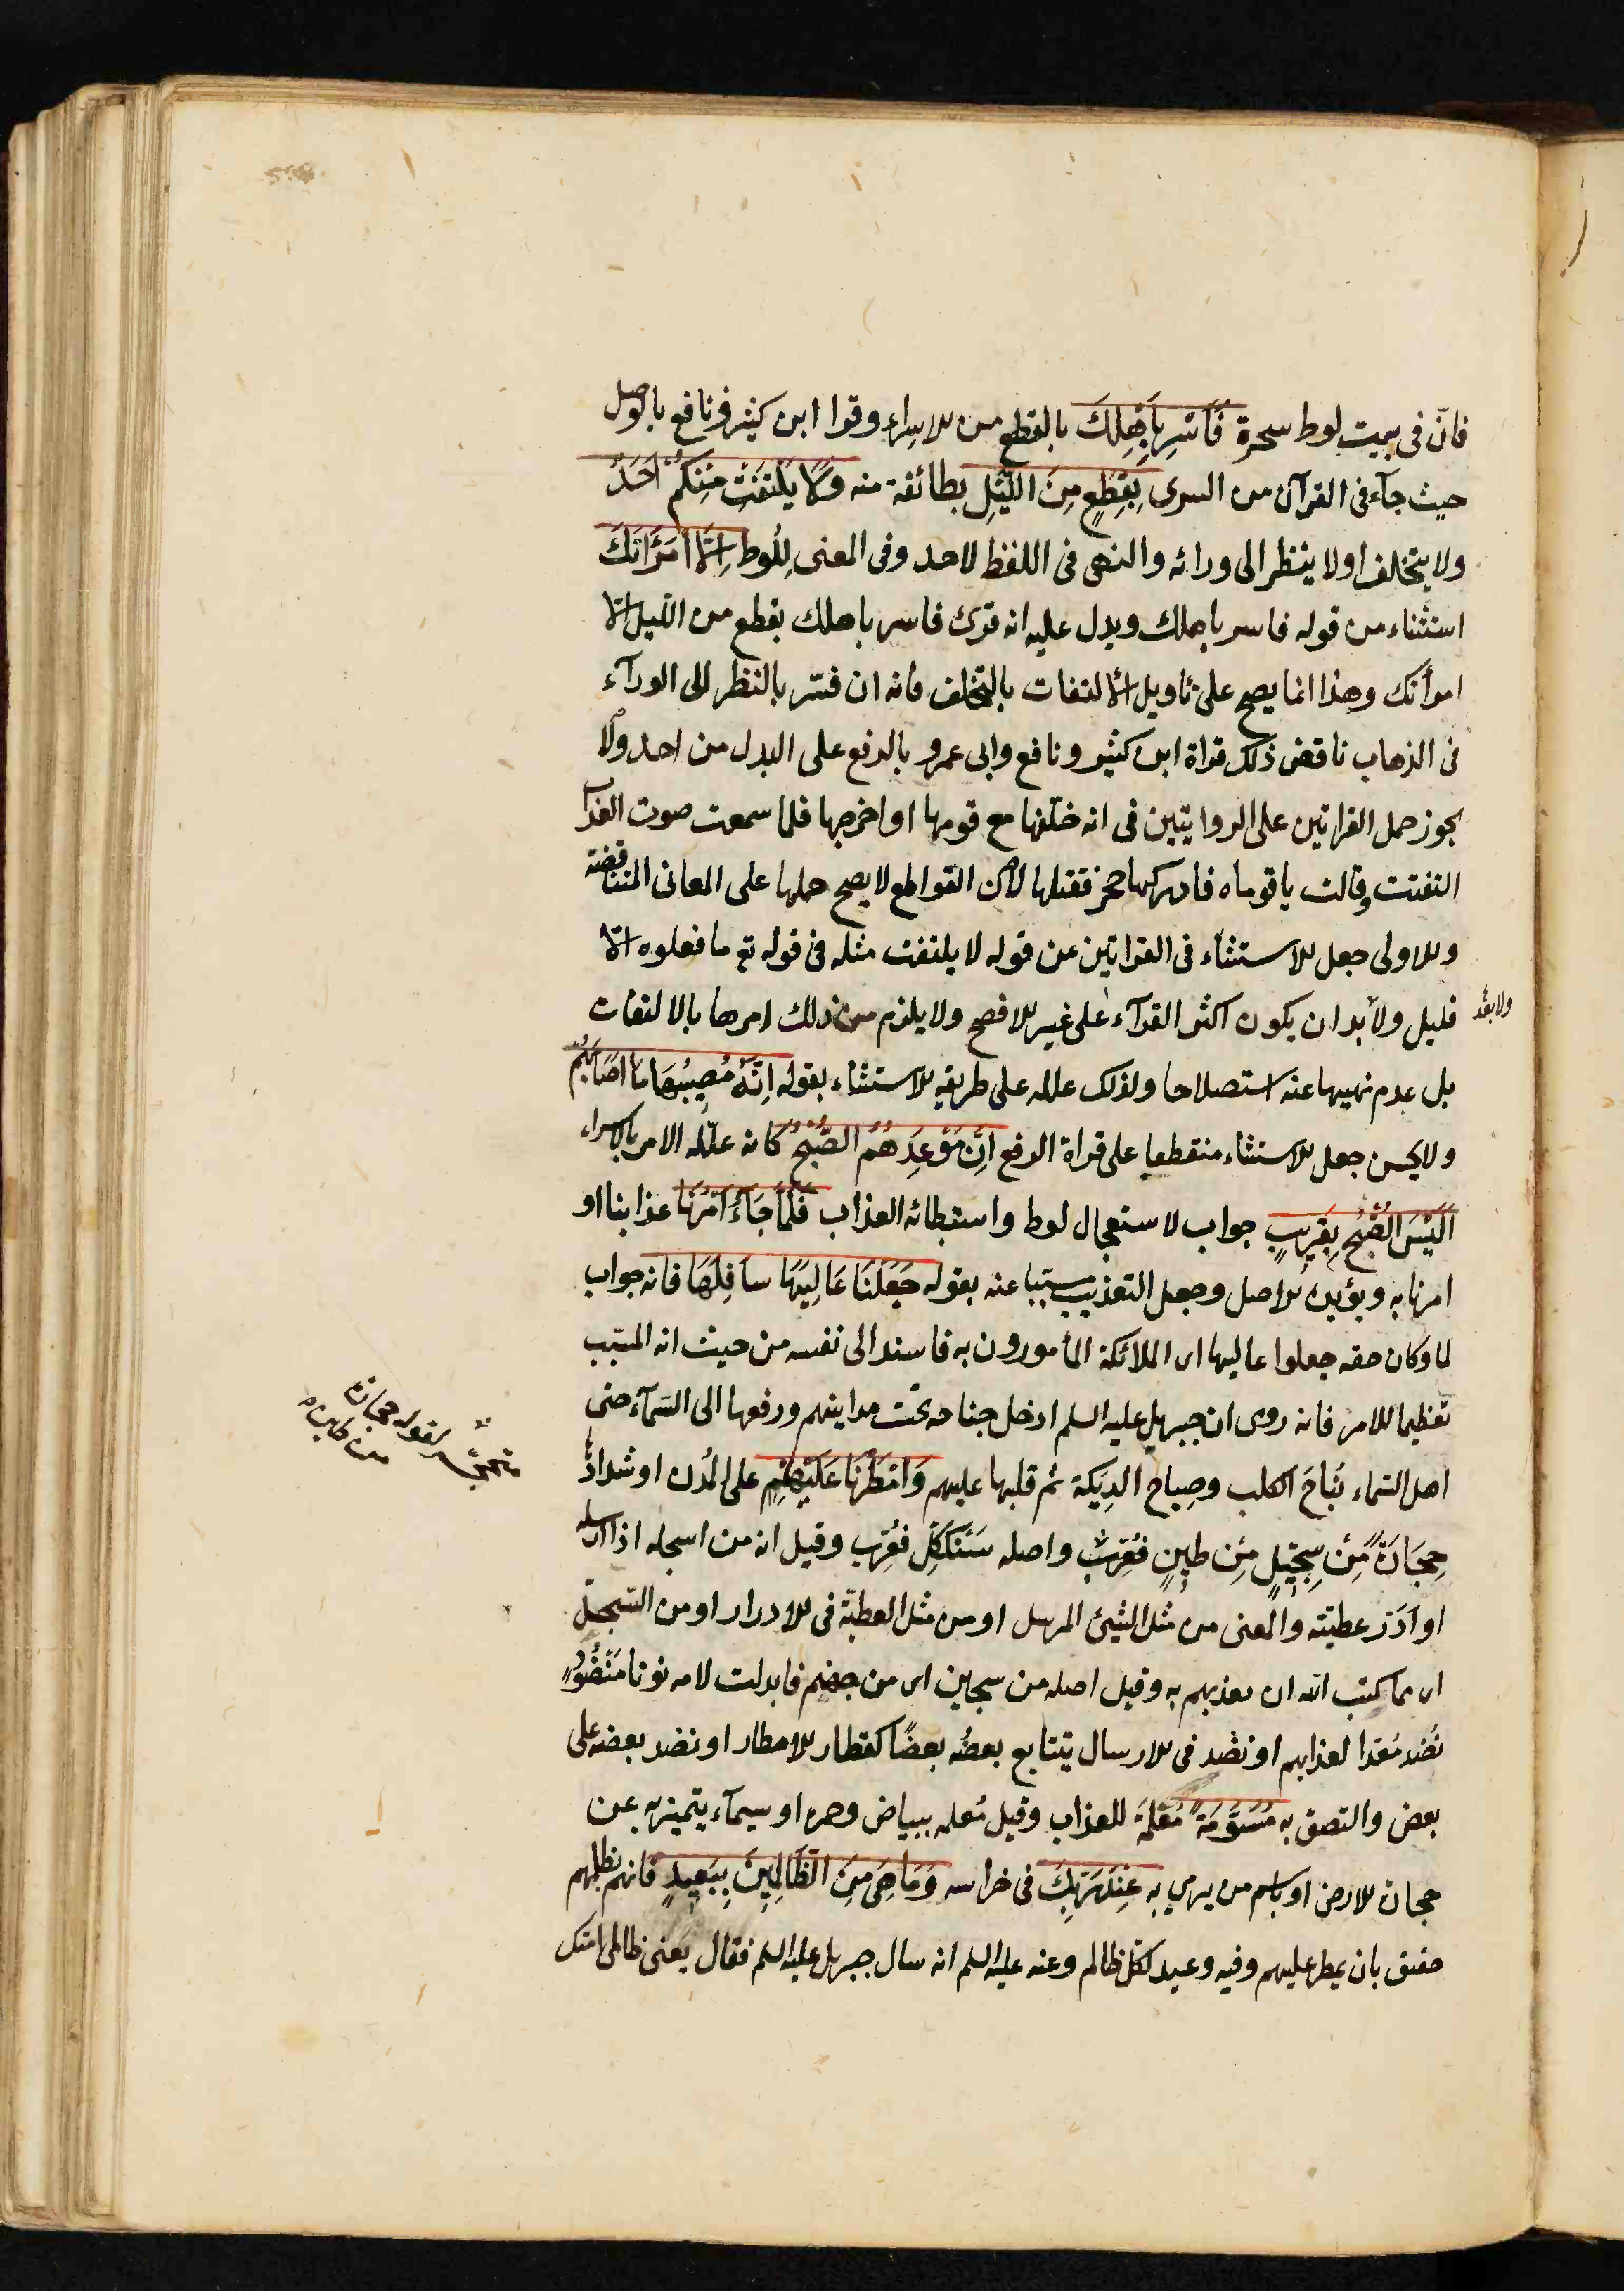 فانّ فى بيت لوط سحرة فَاَسْرِ بِاَهْلِكَ بالقطع من الاسراء وقرا ابن كثير ونافع بالوصل
حيث جآء فى القرآن من السرى بِقِطْعٍ مِنَ اللَّيْلِ بطائفة منه وَلَا يَلْتَفِتْ مِنْكُمْ اَحَدٌ
ولا يتخلف او لا ينظر الى ورائه والنهى فى اللفظ لاحد وفى المعنى لِلُوط اِلَّا امْرَاَتَكَ
استثناء من قوله فاسر باهلك ويدل عليه انه قرئ فاسر باهلك بقطع من الليل الّا
امرأتك وهذا انما يصح على تاويل الالتفات بالتخلف فانه ان فسّر بالنظر الى الورآء
فى الذهاب ناقض ذلك قراة ابن كثير ونافع وابى عمرو بالرفع على البدل من احد ولا
يجوز حمل القراتين على الروايتين فى انه خلّفها مع قومها او اخرجها فلما سمعت صوت العذآ
التفتت وقالت ياقوماه فادركها حجر فقتلها لان القواطع لا يصح حملها على المعانى المتناقضة
والاولى جعل الاستثنآء فى القراتين عن قوله لا يلتفت مثله فى قوله تع ما فعلوه الّا
قليل ولا بد ان يكون اكثر القرآء على غير الافصح ولا يلزم من ذلك امرها بالالتفات
ولا بعد
بل عدم نهيها عنه استصلاحا ولذلك علله على طريقه الاستثناء بقوله اِنَّهُ مُصِيبُهَا مَا اَصَابَهُمْ
ولا يحسن جعل الاستثناء منقطعا على قراة الرفع اِنَّ مَوْعِدَهُمُ الصُّبْحُ كانه علّله الامر بالاسراء
اَلَيْسَ الصُّبْحُ بِقَرِيبٍ جواب لاستعجال لوط واستبطائه العذاب فَلَمَّا جَآءَ اَمْرُنَا عذابنا او
امرنا به ويؤيده الاصل وجعل التعذيب مسببا عنه بقوله جَعَلْنَا عَالِيَهَا سَافِلَهَا فانه جواب
لما وكان حقه جعلوا عاليها اى الملائكة المأمورون به فاسند الى نفسه من حيث انه المسبب
تعظيما للامر فانه روى ان جبريل عليه السلم ادخل جناحه تحت مداينهم ورفعها الى السّمآء حتى
اهل السّماء نُبَاحَ الكلب وصِياح الدِيَكة ثم قلبها عليهم وَاَمْطَرْنَا عَلَيْهِمْ على المُدُن او شذاذ
حِجَارَةً مِنْ سِجِّيلٍ مِن طِينٍ فعُرّبت واصله سَنْكَكِل فعُرّب وقيل انه من اسجله اذا ارسله
لقوله حجارة
من طين
او اَدَرَّ عطيته والمعنى من مثل الشئ المرسل او من مثل العطية فى الادرار او من السجلّ
اى مما كتب الله ان يعذبهم به وقيل اصله من سجين اى من جهنم فابدلت لامه نونا مَنْضُودٍ
نُضد مُعَدا لعذابهم او نضد فى الارسال يتتابع بعضُه بعضًا كقطار الامطار او نضد بعضه على
بعض والتصق به مُسَوَّمَةً مُعَلَّمَة للعذاب وقيل مُعلمه ببياض وحمره او سيمآء يتميز به عن
حجارة الارض او باسم من يرمى به عِنْدَ رَبِّكَ فى خزائنه وَمَا هِىَ مِنَ الظَّالِمِينَ بِبَعِيدٍ فانهم بظلمهم
حقيق بان يمطر عليهم وفيه وعيد لكل ظالم وعنه عليه السلم انه سال جبريل عليه السلم فقال يعنى ظالمى امتك